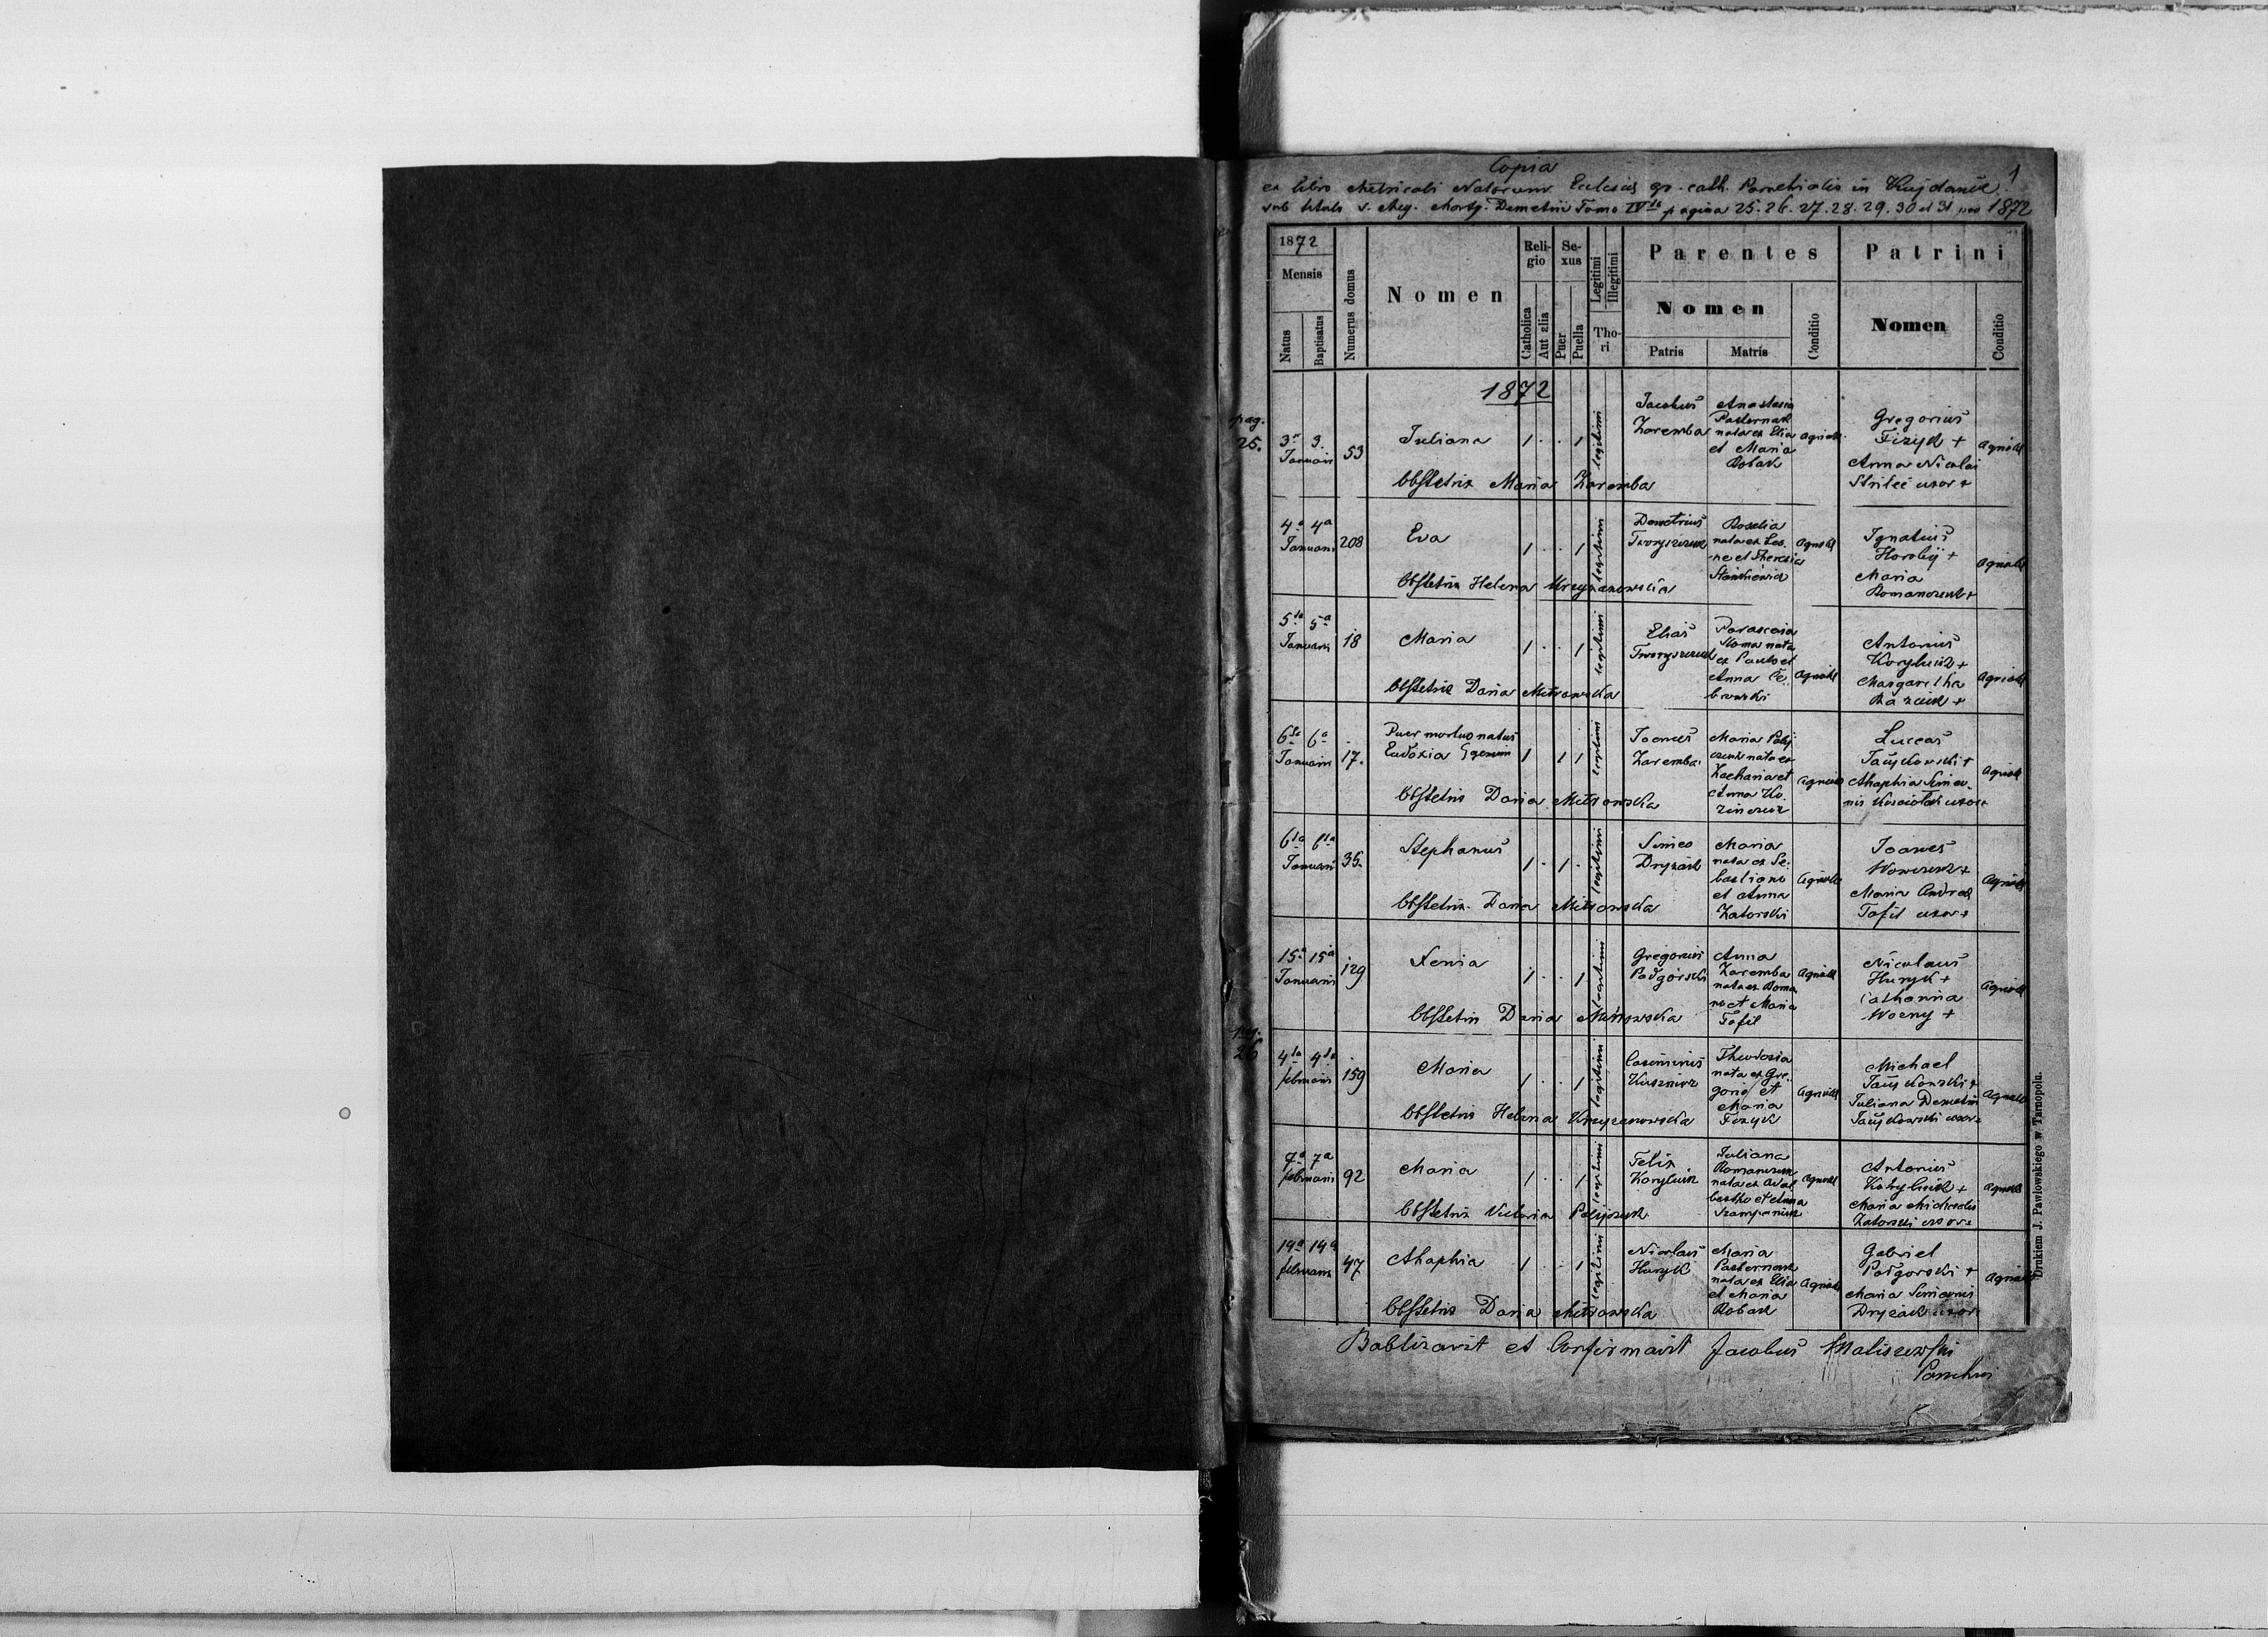 Copia
1
ex libro Metricali Natorum Eclesias gr. cath. Parochialis in Kujdance
sub titulo S. Meg. Marty. Demetrii Tomo IV pagina 25. 26. 27. 28. 29. 30 et 31 pro 1872
1872
Mensis
Natus
Baptisatus
Numerus domus
Nomen
Religio
Catholica
Aut alia
Sexus
Puer
Puella
Legitimi
Illegitimi
Thori
Parentes
Nomen
Patris
Matris
Conditio
Patrini
Nomen
Conditio
1872
pag.
25.
3a 3. Januarii 53 Juliana 1 . . 1 legitimi
Jacobus Zaremba
Anastasia
Pasternak
nata ex Elia
et Maria
Robak
Agricola
Gregorius
Fizyk +
Anna Nicolai
uxor +
Agricola
Obstetrix Maria Zaremba
4a 4a Januarii 208 Eva 1 . . 1 legitimi
Demetrius
Rosalia
nata ex Leo-
ne et Theresia
Agricola
Ignatius
+
Maria
Romanczuk +
Agricola
Obstetrix Helena Krzyzanowska
5ta 5a Januarii 18 Maria 1 . . 1 legitimi
Elias
Parascevia
nata
ex Paulo et
Anna
Agricola
Antonius
Koryluik +
Margaretha
+
Agricola
Obstetrix Daria Mitrowska
6ta 6a Januarii 17. Puer mortuo natus
Eudoxia gemini 1 1 1 legitimi
Joannes
Zaremba
Maria
nata ex
Zacharia et
Anna
Agricola
Luccas
+
Ahaphia Simeo-
nis uxor +
Agricola
Obstetrix Daria Mitrowska
6ta 6ta Januarii 35. Stephanus 1 . 1 . legitimi
Simeo
Dryzak
Maria
nata ex Se-
bastiano
et Anna
Zatorski
Agricola
Joannes
+
Maria Andreae
Tofil uxor +
Agricola
Obstetrix Daria Mitrowska
15a 15a Januarii 129 Xenia 1 . . 1 legitimi
Gregorius
Podgorski
Anna
Zaremba
nata ex Roma
no et Maria
Tofil
Agricola
Nicolaus
Huryk +
Catharina
Wozny +
Agricola
Obstetrix Daria Mitrowska
pag.
26
4ta 4ta februarii 159 Maria 1 . . 1 legitimi
Casimirus
Kusznier
Theodosia
nata ex Gre-
gorio et
Maria
Fizyk
Agricola
Michael
+
Juliana Demetrii
uxor +
Agricola
Obstetrix Helena Krzyzanowska
7a 7a februarii 92 Maria 1 . . 1 legitimi
Felix
Koryluik
Juliana
Romanczuk
nata ex Adal
berto et Anna
Agricola
Antonius
Koryluik +
Maria Michaelis
Zatorski uxor +
Agricola
Obstetrix Victoria
14a 14a februarii 47 Ahaphia 1 . . 1 legitimi
Nicolaus
Huryk
Maria
Pasternak
nata ex Elia
et Maria
Robak
Agricola
Gabriel
Podgorski +
Maria Simeonis
Dryzak uxor
Agricola
Obstetrix Daria Mitrowska
Babtizavit et Confirmavit Jacobus Maliszewski
Parochus
Drukiem J. Pawłowskiego w Tarnopolu.